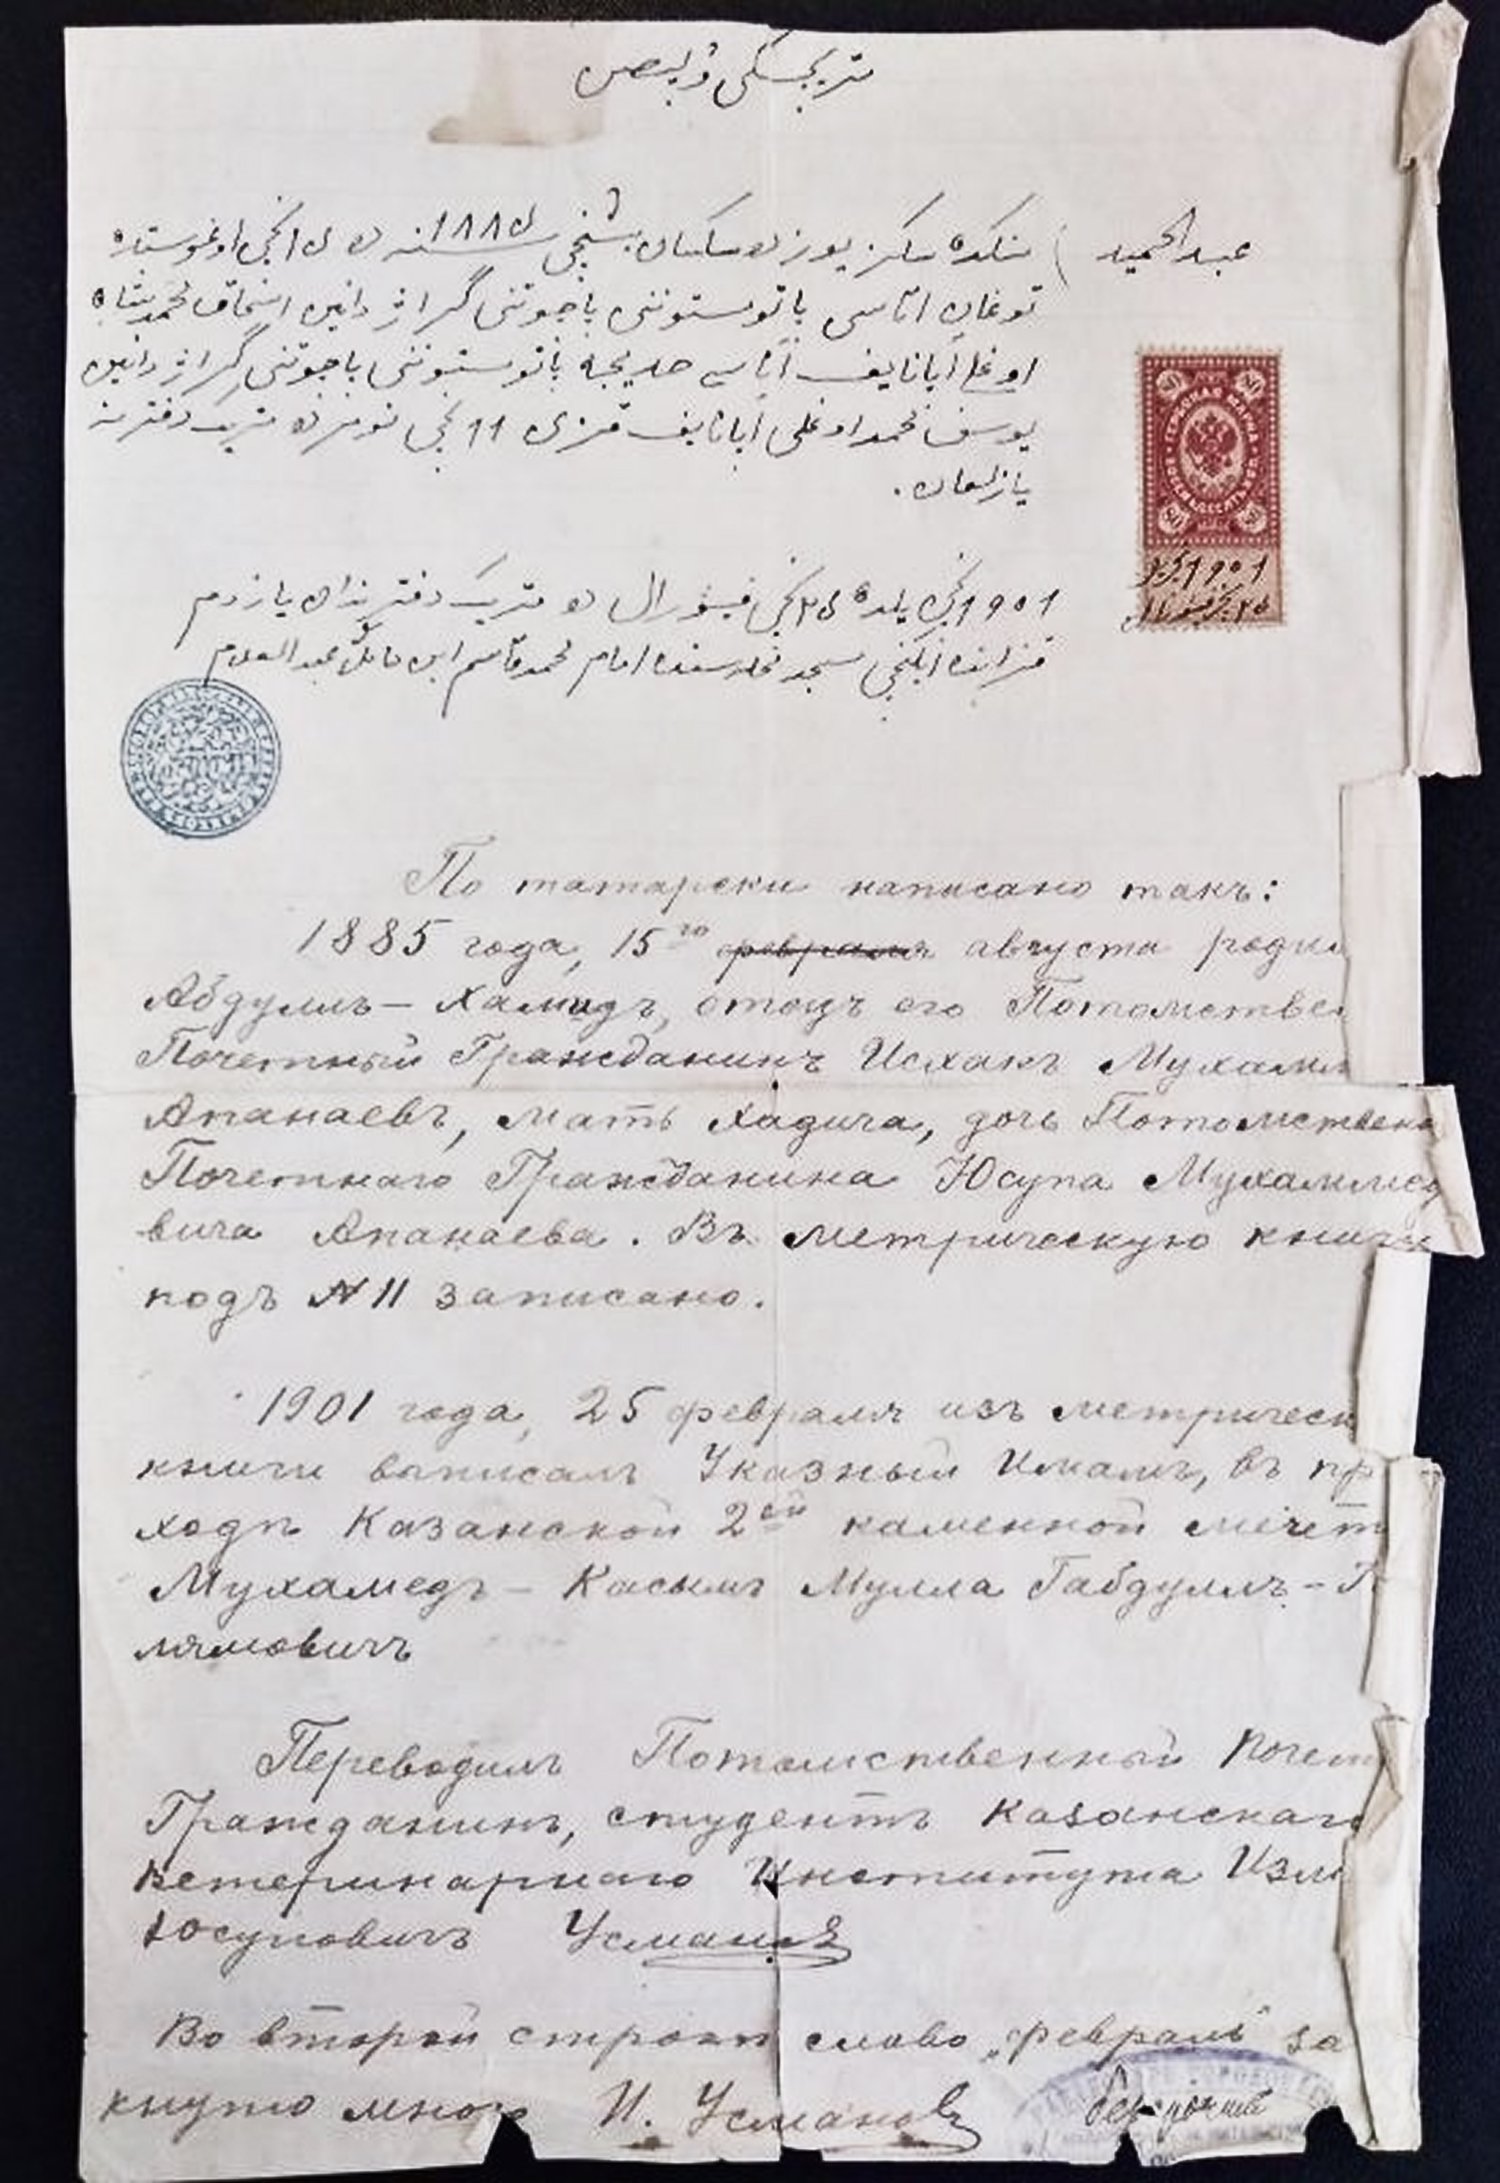 عبد الحميد
منكده سكز يوزده سكسان بشنجى ١٨٨٥ سنه ده ١٥ نجى اوغوستده
توغان اتاسى پاتومستوننى پاچوتنى گراژدانين اسحاق محمدشاه
اوغلى اپانايف اناسى خديجه پاتومستوننى پاچوتنى گراژدانين
يوسف محمد اوغلى اپانايف قزى 11 نجى نومرده متريك دفترينه
يازلغان.
1901 نجى يلده ٢٥ نجى فيورالده متريك دفتريندان يازدم
قزانده ايكنجى مسجد محله سنده امام محمد قاسم ابن ملا عبد العلام
1901
По татарски написано такъ:
1885 года, 15го февраля августа роди
Абдулъ-Хамидъ, отецъ его Потомствен
Почетный Гражданинъ Исхакъ Мухам
Апанаевъ, мать Хадича, дочь Потомственна
Почетнаго Гражданина Юсупа Мухаммед
вича Апанаева. Въ метрическую книгу
подъ N 11 записано.
1901 года, 25 февраля изъ метрическ
книги выписалъ Указный Имамъ, въ пр
ходѣ Казанской 2ой каменной мечет
Мухамедъ-Касымъ Мулла Габдулъ-Г
лямовичъ
Переводилъ Потомственный Почет
Гражданинъ, студентъ Казанскаго
Ветеринарнаго Института Изм
Юсуповичъ Усмановъ
Во второй строкѣ слово „февраль" за
кнуто мною И. Усмановъ